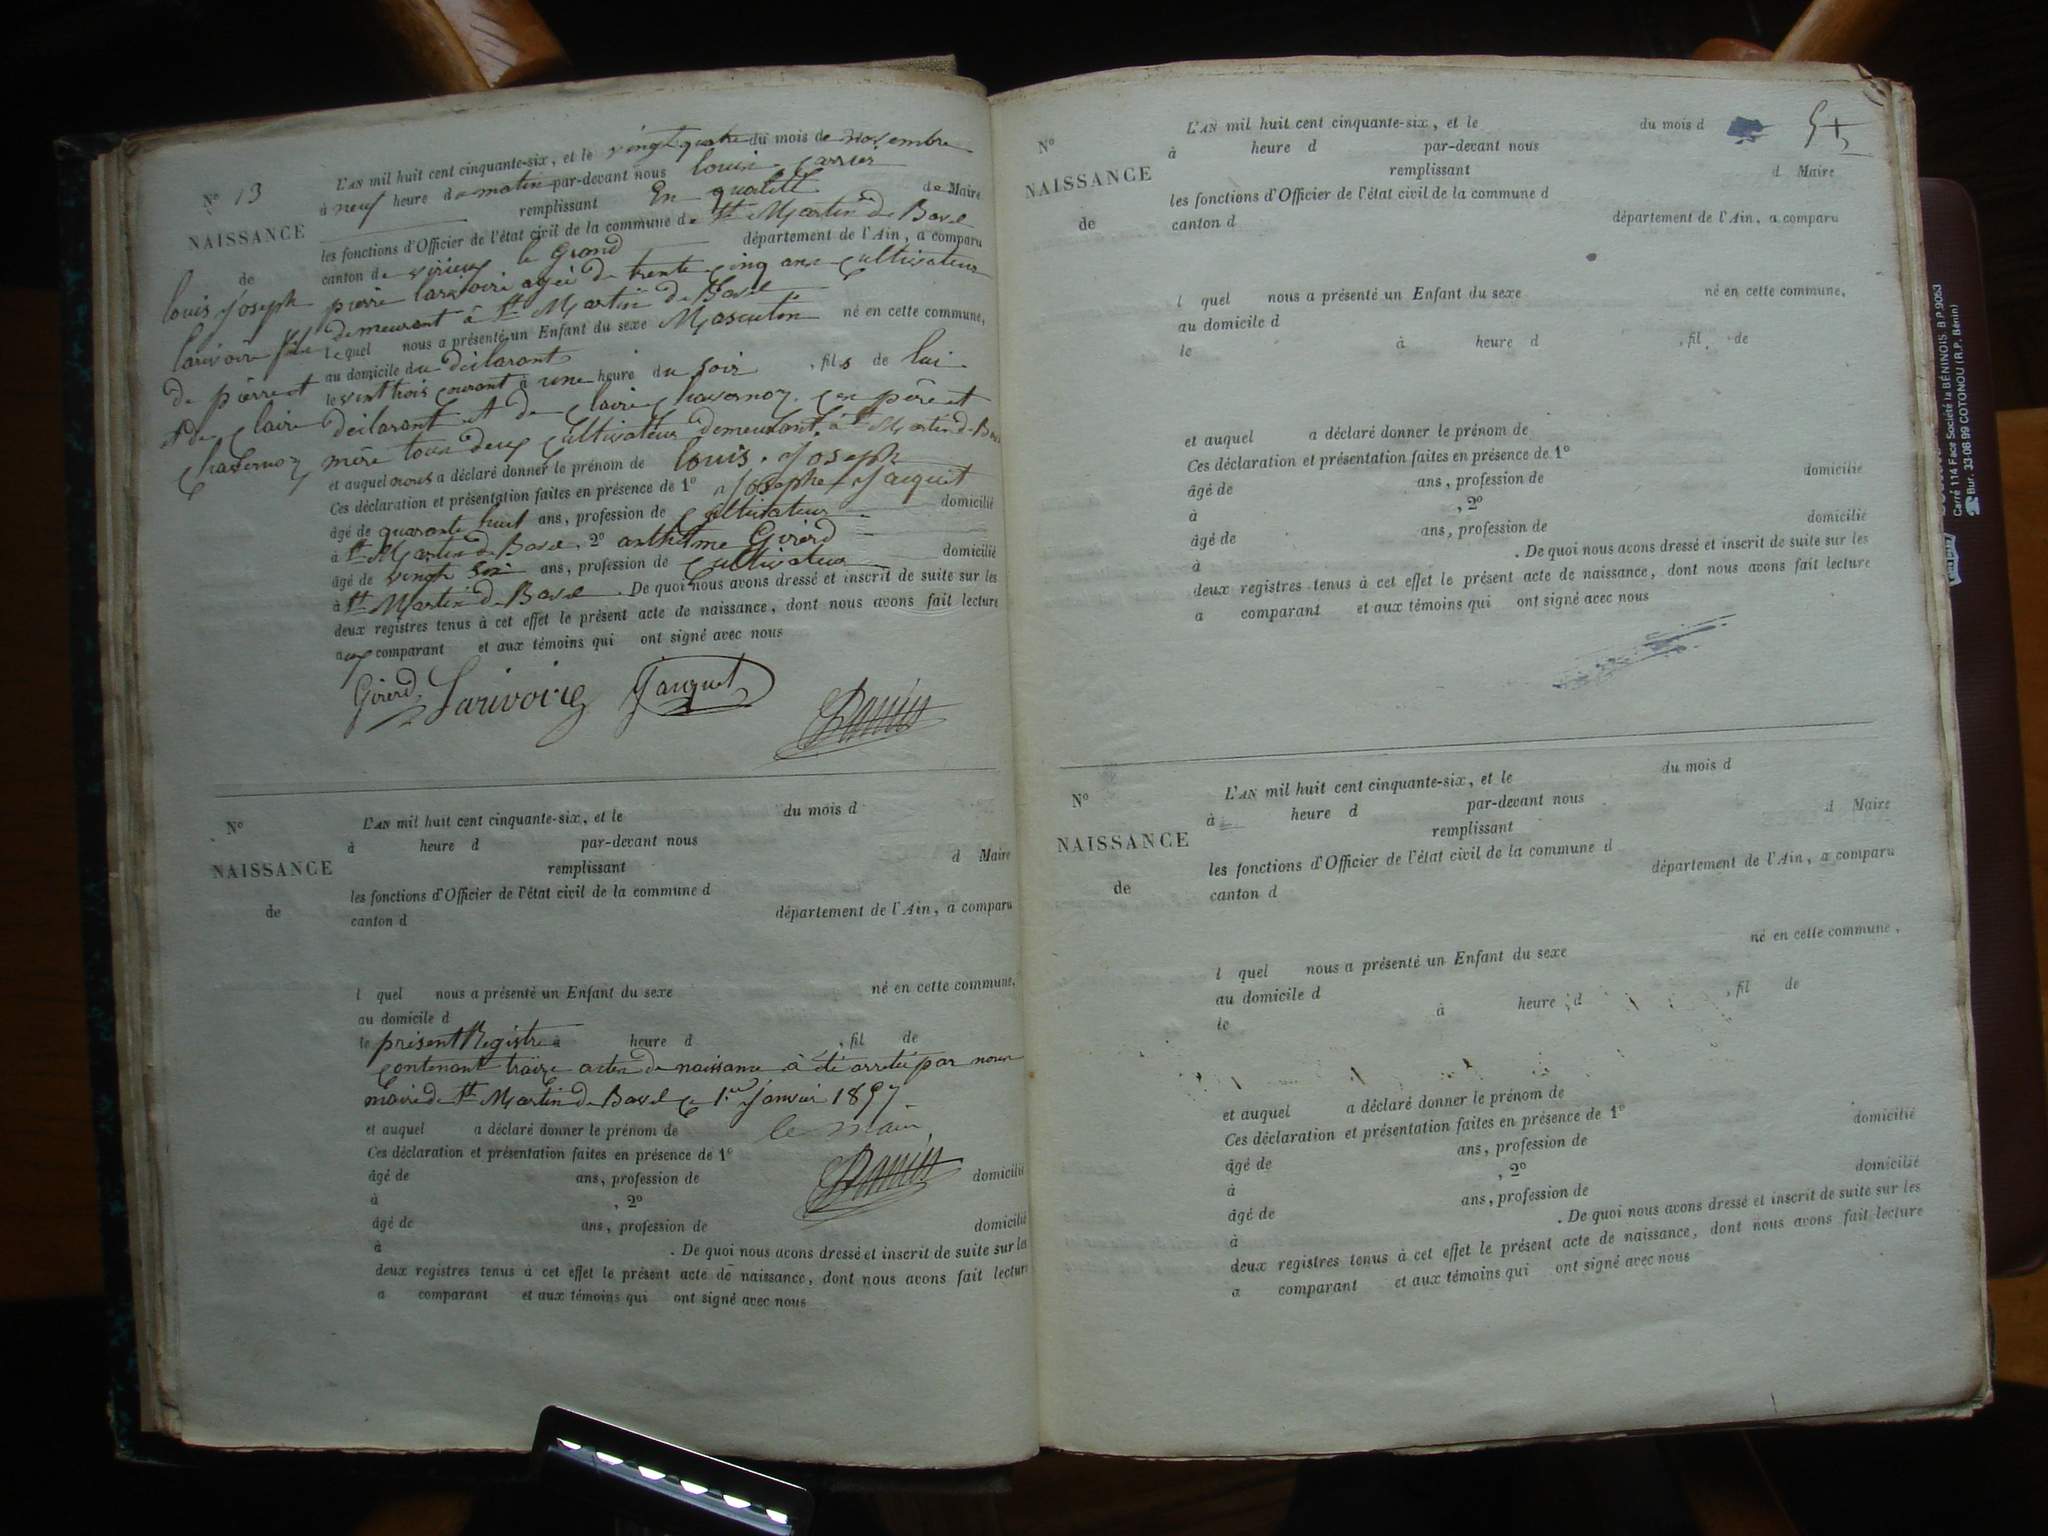 N° 13
NAISSANCE
de
louis joseph
larivoire fils
de pierre et
de claire
chavernoz
L'AN mil huit cent cinquante-six, et le vingt quatre du mois de novembre
à neuf heure de matin par-devant nous louis
remplissant En qualité de Maire
les fonctions d'Officier de l'état civil de la commune de St Martin de Bavel
canton de virieux le Grand département de l'Ain, a comparu
pierre larivoire agée de trente cinq ans cultivateur
demeurant à St Martin de Bavel
lequel nous a présenté un Enfant du sexe Masculin né en cette commune,
au domicile du déclarant
le vint trois courant à une heure du soir , fils de lui
déclarant et de claire chavernoz père et
mère tous deux cultivateur demeurant à St Martin d. Bavel
et auquel nous a déclaré donner le prénom de louis joseph
Ces déclaration et présentation faites en présence de 1° josephe jacquet
âgé de quarante huit ans, profession de cultivateur domicilié
à St Martin de Bavel, 2° anthelme Girerd
âgé de vingt six ans, profession de cultivateur domicilié
à St Martin de Bavel. De quoi nous avons dressé et inscrit de suite sur les
deux registres tenus à cet effet le présent acte de naissance, dont nous avons fait lecture
aux comparant et aux témoins qui ont signé avec nous
Girerd Larivoire Jacquet
N°
NAISSANCE
de
L'AN mil huit cent cinquante-six, et le du mois d
à heure d par-devant nous
remplissant d Maire
les fonctions d'Officier de l'état civil de la commune d
canton d département de l'Ain, a comparu
l quel nous a présenté un Enfant du sexe né en cette commune,
au domicile d
le présent Registre à heure d , fil de
contenant traize actes de naissance à été arrêtée par nous
maire de St Martin de Bavel le 1er janvier 1857
et auquel a déclaré donner le prénom de le maire
Ces déclaration et présentation faites en présence de 1°
âgé de ans, profession de domicilié
à , 2°
âgé de ans, profession de domicilié
à . De quoi nous avons dressé et inscrit de suite sur les
deux registres tenus à cet effet le présent acte de naissance, dont nous avons fait lecture
a comparant et aux témoins qui ont signé avec nous
N°
NAISSANCE
de
L'AN mil huit cent cinquante-six, et le du mois d
à heure d par-devant nous
remplissant d Maire
les fonctions d'Officier de l'état civil de la commune d
canton d département de l'Ain, a comparu
l quel nous a présenté un Enfant du sexe né en cette commune,
au domicile d
le à heure d , fil de
et auquel a déclaré donner le prénom de
Ces déclaration et présentation faites en présence de 1°
âgé de ans, profession de domicilié
à , 2°
âgé de ans, profession de domicilié
à . De quoi nous avons dressé et inscrit de suite sur les
deux registres tenus à cet effet le présent acte de naissance, dont nous avons fait lecture
a comparant et aux témoins qui ont signé avec nous
N°
NAISSANCE
de
L'AN mil huit cent cinquante-six, et le du mois d
à heure d par-devant nous
remplissant d Maire
les fonctions d'Officier de l'état civil de la commune d
canton d département de l'Ain, a comparu
l quel nous a présenté un Enfant du sexe né en cette commune,
au domicile d
le à heure d , fil de
et auquel a déclaré donner le prénom de
Ces déclaration et présentation faites en présence de 1°
âgé de ans, profession de domicilié
à , 2°
âgé de ans, profession de domicilié
à . De quoi nous avons dressé et inscrit de suite sur les
deux registres tenus à cet effet le présent acte de naissance, dont nous avons fait lecture
a comparant et aux témoins qui ont signé avec nous
Carré 114 Face Société la BÉNINOIS. B.P. 9053
Bur. 33 08 99 COTONOU (R.P. Bénin)